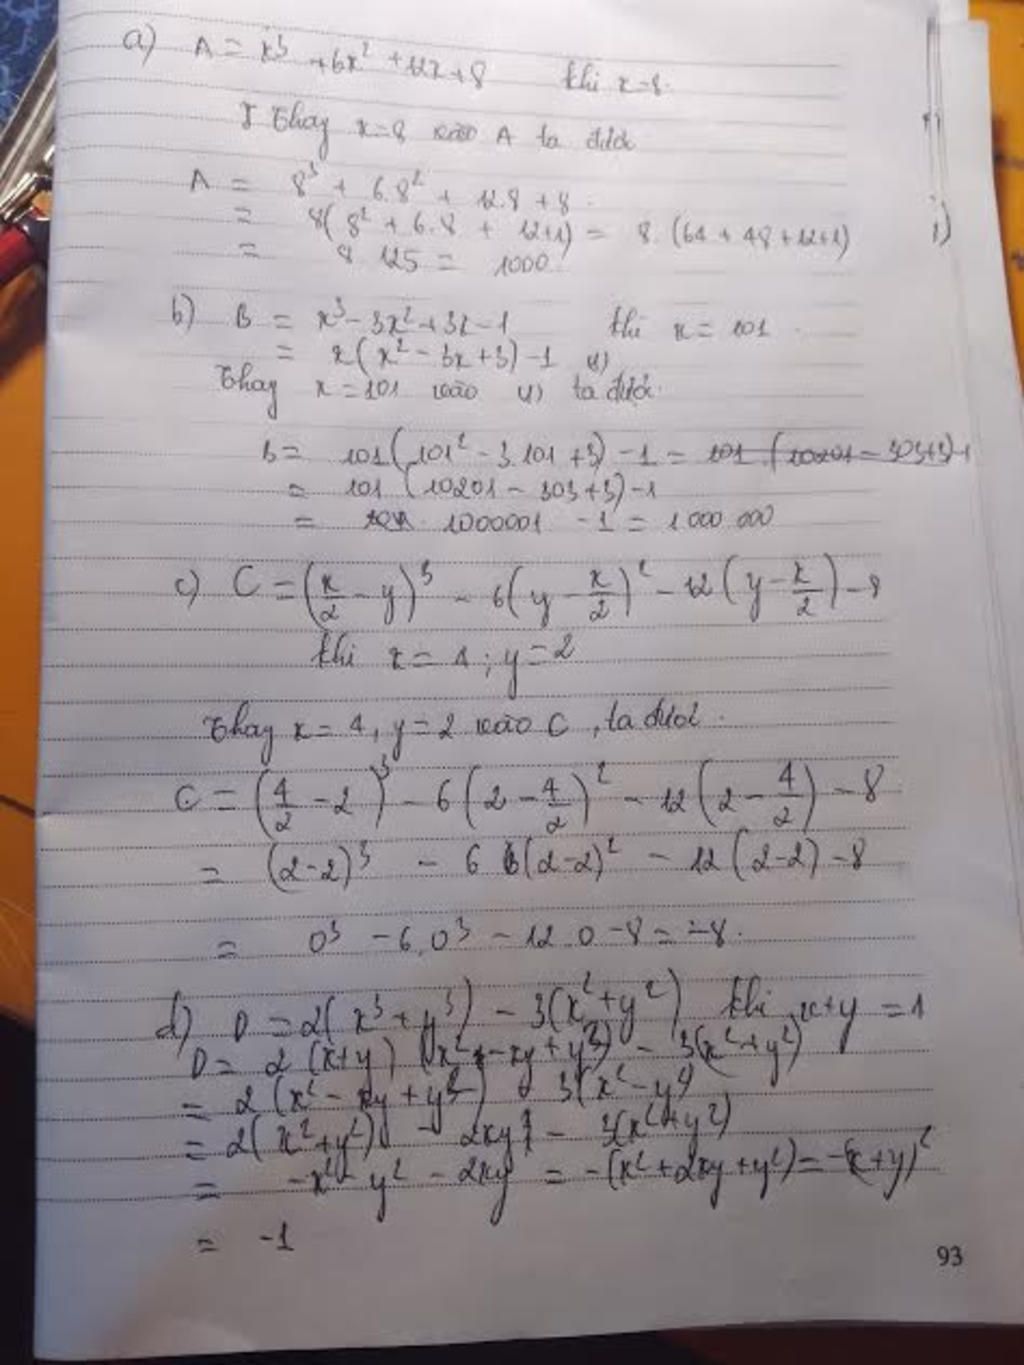 a) A = x³ + 6x² + 12x + 8 khi x = 8.
Thay x = 8 vào A ta được
A = 8³ + 6.8² + 12.8 + 8.
= 8(8² + 6.8 + 12+1) = 8.(64 + 48 + 12+1)
= 8 125 = 1000.
b) B = x³ - 3x² + 3x - 1 khi x = 101.
= x(x² - 3x + 3) - 1 (1)
Thay x = 101 vào (1) ta được
B = 101(101² - 3.101 + 3) - 1 = 101.(10201 - 303+3)-1
= 101 (10201 - 303 + 3) - 1
= 1000001 - 1 = 1000 000
c) C = (x/2 - y)³ - 6(y - x/2)² - 12(y - x/2) - 8
khi x = 4; y = 2
Thay x = 4, y = 2 vào C, ta được.
C = (4/2 - 2)³ - 6(2 - 4/2)² - 12(2 - 4/2) - 8
= (2-2)³ - 6 (2-2)² - 12(2-2) - 8
= 0³ - 6.0³ - 12.0 - 8 = -8.
d) D = 2(x³ + y³) - 3(x² + y²) khi x+y = 1
D = 2 (x+y) (x² - xy + y²) - 3(x² + y²)
= 2 (x² - xy + y²) 3(x² - y²)
= 2(x² + y²) - 2xy - 3(x² + y²)
= -x² - y² - 2xy = -(x² + 2xy + y²) = -(x+y)²
= -1
i)
93